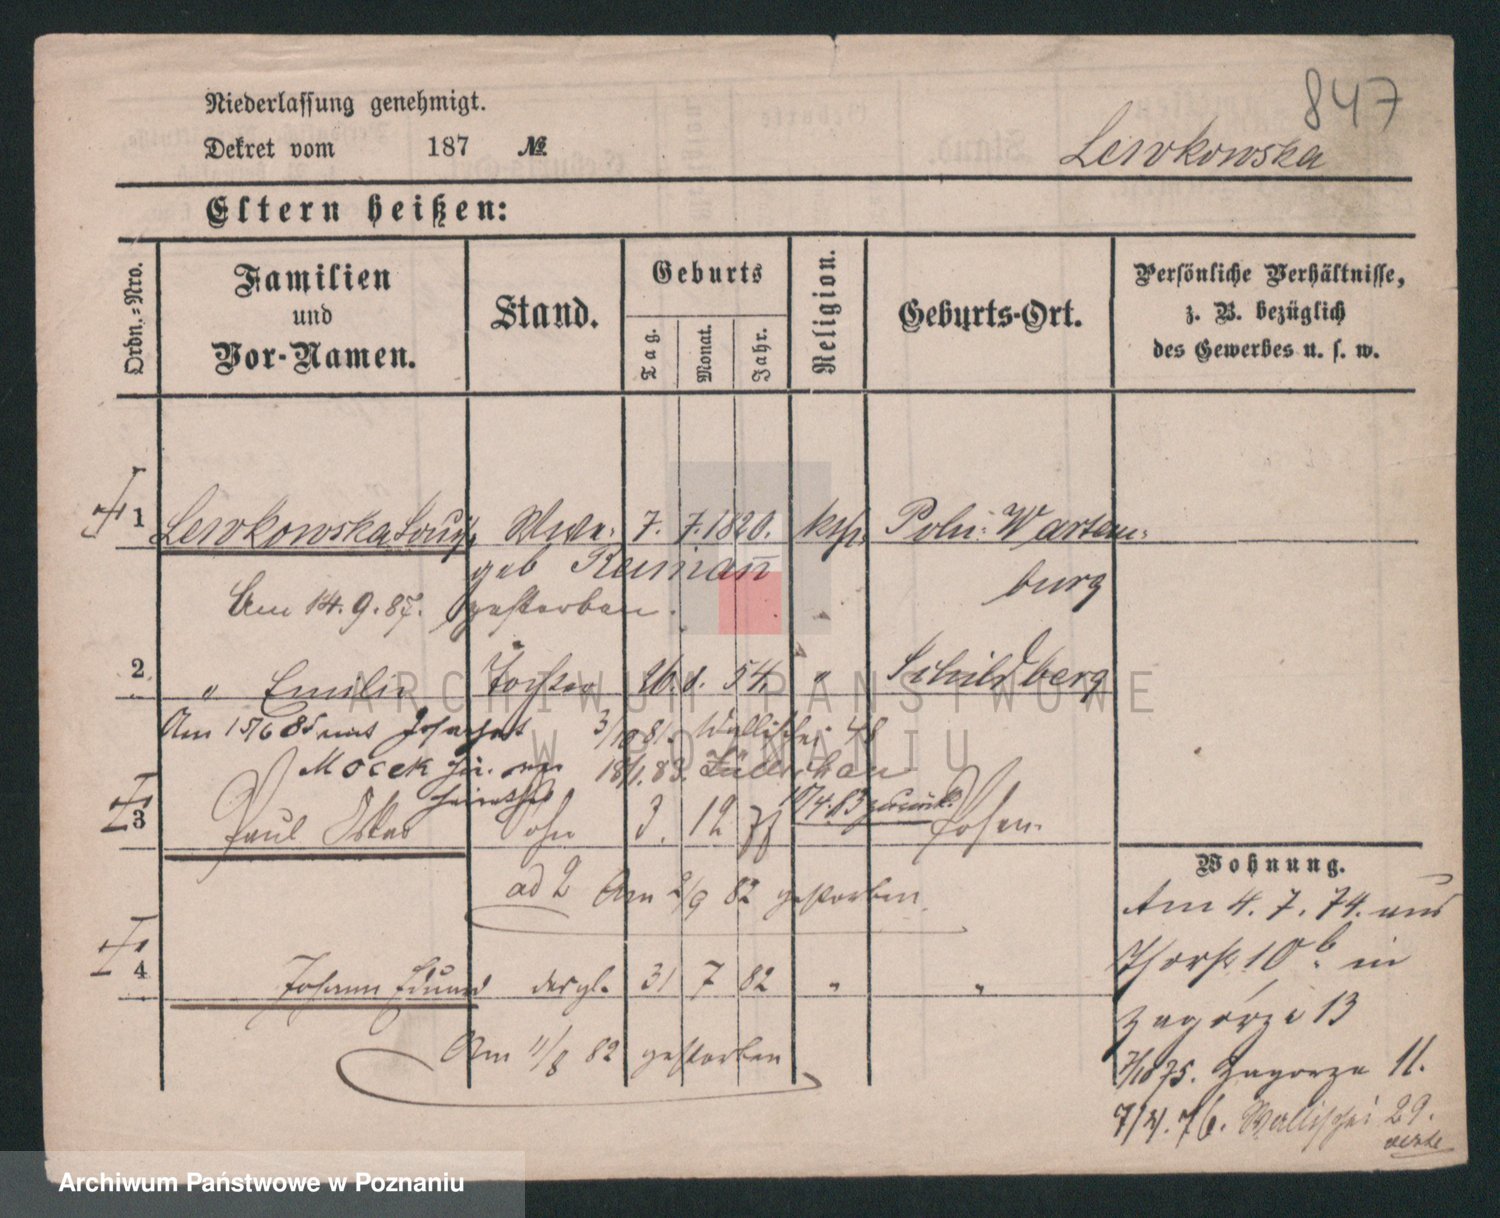 847
Niederlassung genehmigt.
Dekret vom 187 №
Lewkowska
Eltern heißen:
Ordn.-Nro.
Familien und Vor-Namen.
Stand.
Geburts
Tag.
Monat.
Jahr.
Religion.
Geburts-Ort.
Persönliche Verhältnisse, z. B. bezüglich des Gewerbes u. s. w.
1 Lewkowska Louise Wwe. 7. 7. 1820. kath. Poln. Warten-
geb Reiman̄ burg
Am 14. 9. 87. gestorben.
2 " Emilie Tochter 26. 8. 54. " Schildberg
Am 15/6 85 mit 3/10 81. Wallischei 48
Mocek 18/1. 83. Züllichau
heirathet 10/4. 83 zurück.
3 Paul Oskar Sohn 3. 12 77 Posen.
ad 2 Am 2/9 82 gestorben
4 Johann Eduard desgl. 31 7 82 " "
Am 11/8 82 gestorben
Wohnung.
Am 4. 7. 74. aus
Thorst 10b. in
Zagórze 13
7/10 75. Zagorze 11.
7/4. 76. Wallischei 29.
ARCHIWUM PAŃSTWOWE
W POZNANIU
Archiwum Państwowe w Poznaniu